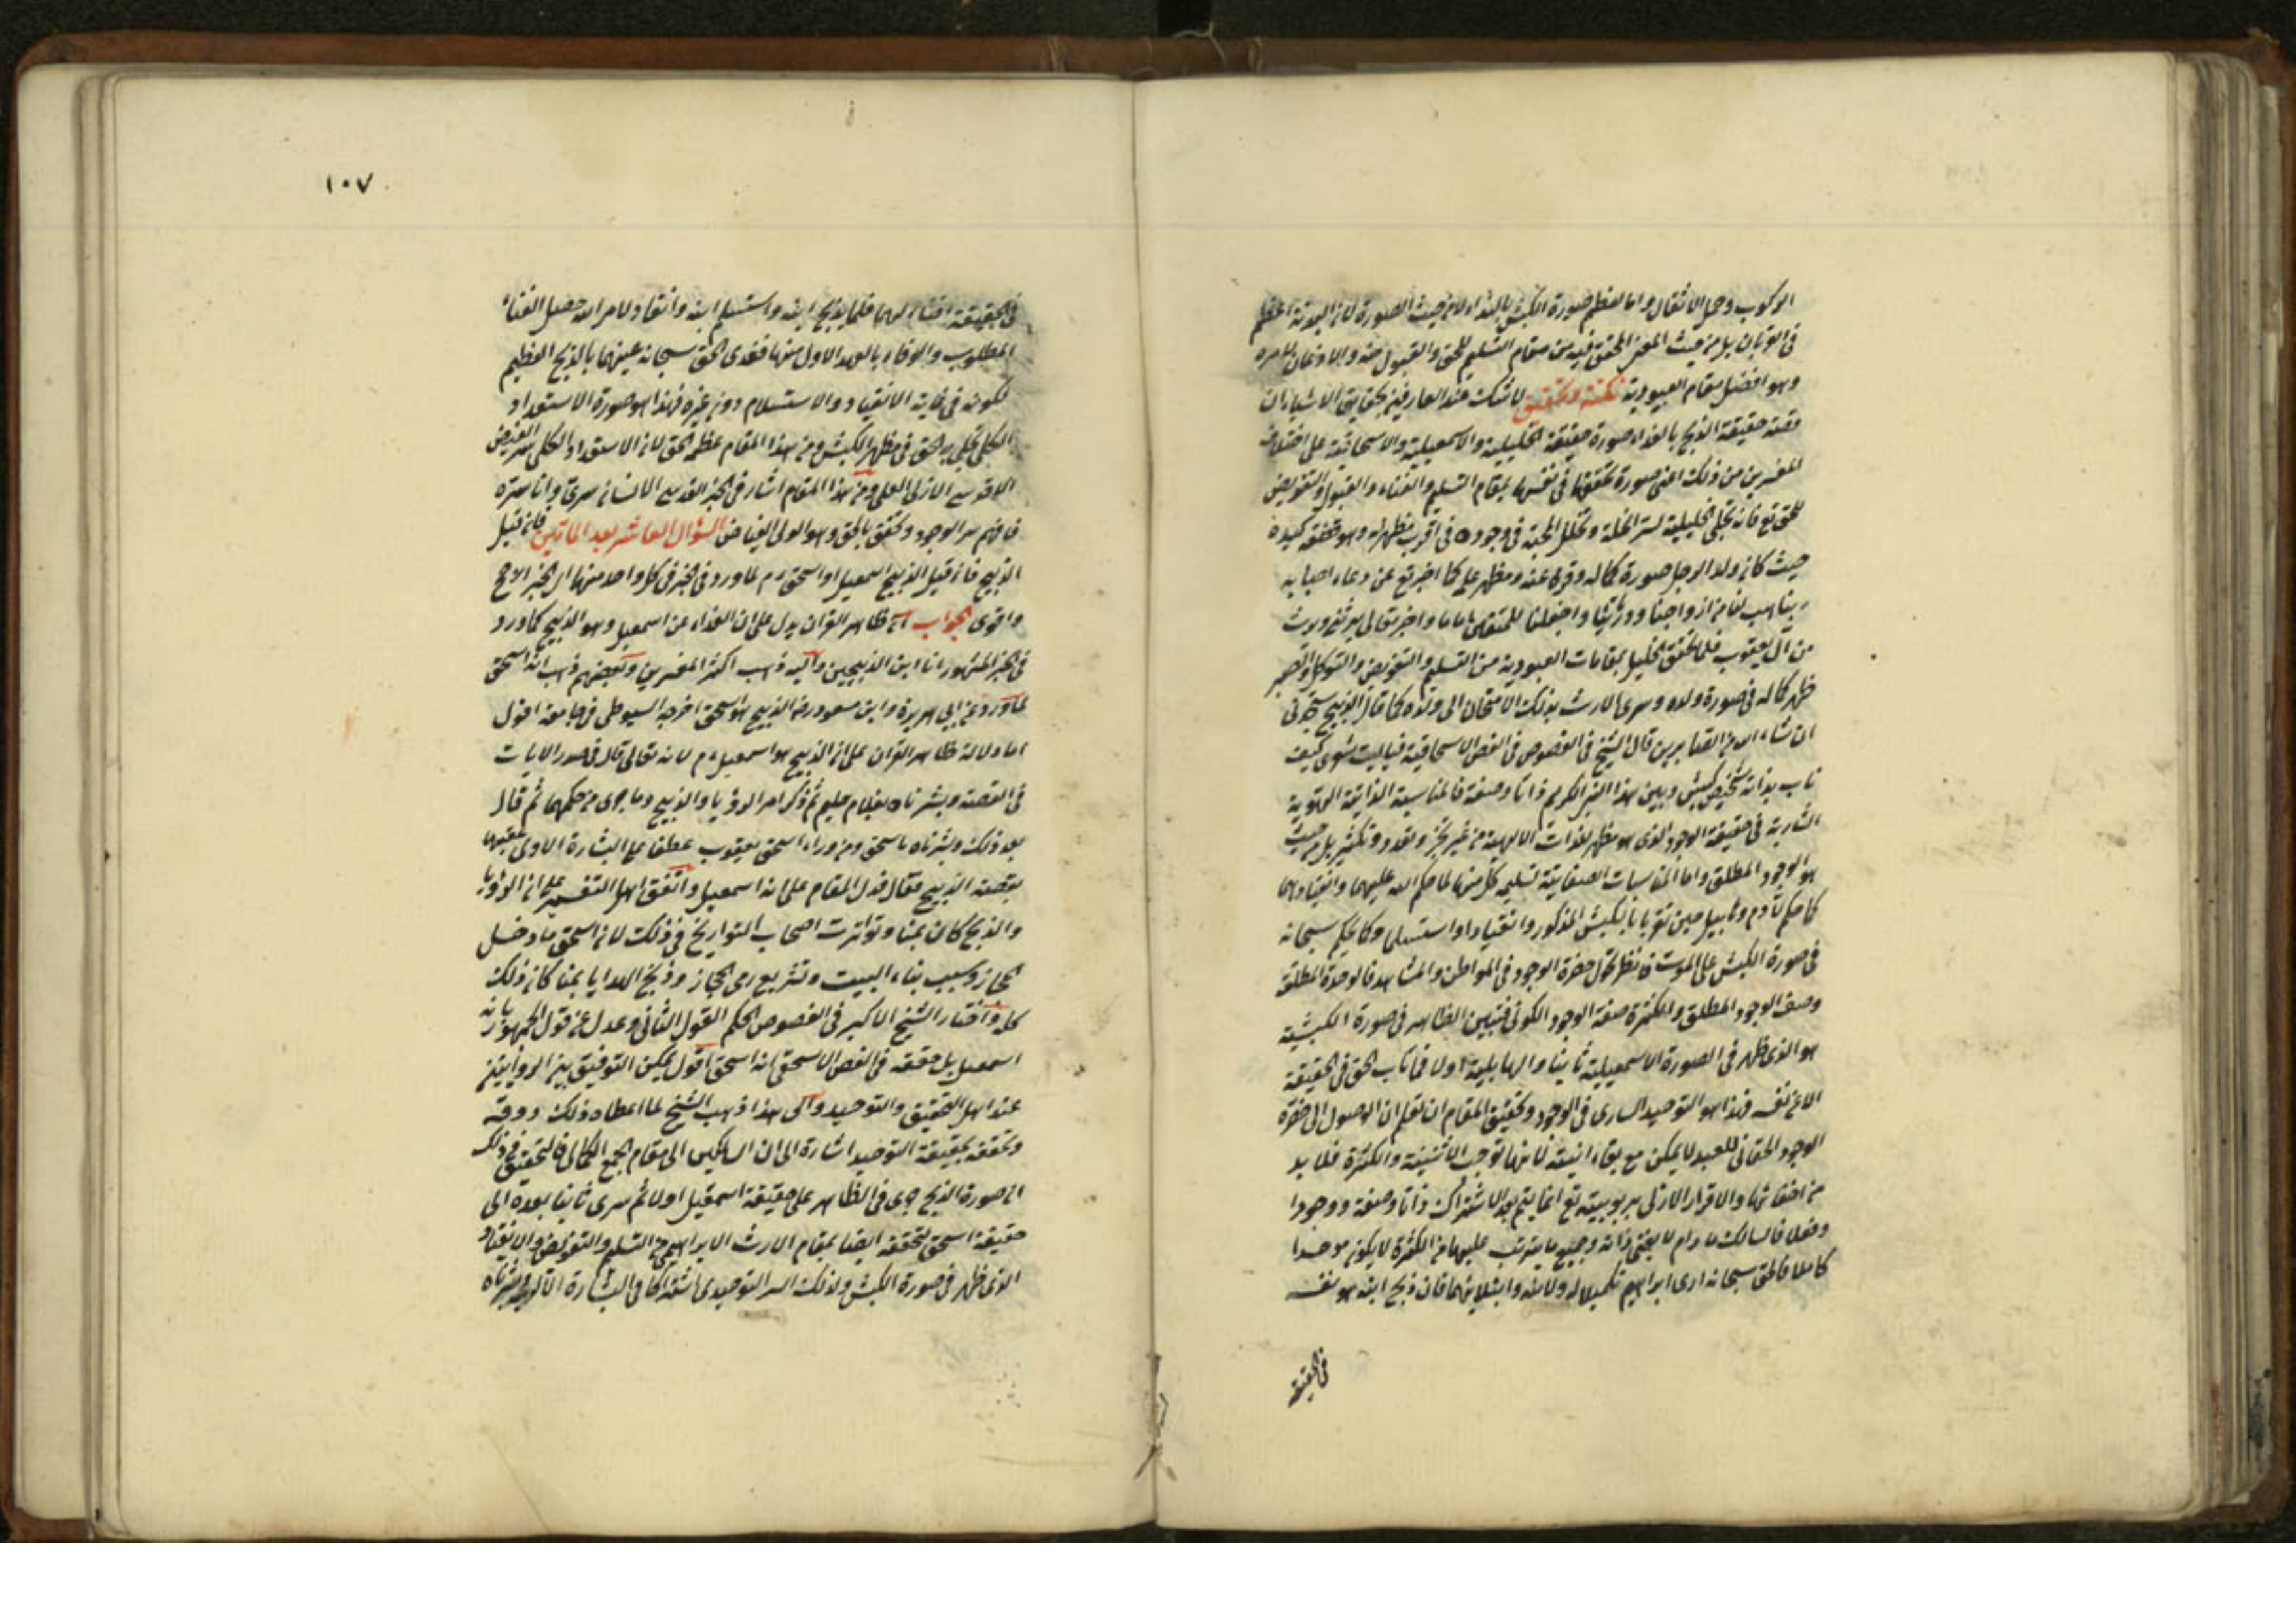 الركوب وحمل الاثقال واما لعظم صورة الكبش بالفداء لا من حيث الصورة لان البدنة اعظم
في القربان بل من حيث المعنى المحقق فيه من مقام التسليم للحق والقبول منه والاذعان لامره
وهو افضل مقام العبودية نكتة وتحقيق لا شك عند العارفين بحقايق الاشياء ان
قصة حقيقة الذبح بالفداء صورة حقيقة الخليلية والاسمعيلية والاسحاقية على اختلاف
المفسرين من ذلك اعنى صورة تحققها في نفسها بمقام التسليم والفناء والقبول والتفويض
للحق تع فانه تجلى الخليلية لسر الخلة وتخلل المحبة في وجوده في اقرب مظهر له وهو تحققه كبده
حيث كان ولد الرجل صورة كماله وفرعا عنه ومظهر علمه كما اخبر تع عن دعاء احبابه
ربنا هب لنا من ازواجنا وذريتنا واجعلنا للمتقين اماما واخبر تعالى يرثني ويرث
من آل يعقوب فلما تحقق الخليل بمقامات العبودية من التسليم والتفويض والتوكل والصبر
ظهر كماله في صورة ولده وسرى الارث بذلك الامتحان الى ولده كما قال الذبيح ستجدني
ان شاء الله من الصابرين قال الشيخ في الفصوص في الفص الاسحاقية فياليت شعري كيف
ناب بذاته شخيص كبيش وبين هذا السر الكريم ذاتا وصفة فالمناسبة الذاتية الهوية
السارية في حقيقة الوجود الذي هو مظهر لذات الالهية من غير تجز وتعدد وتكثير بل من حيث
هو الوجود المطلق واما المناسبات الصفاتية تسليم كل منهما لما حكم الله عليهما وانقيادهما
كما حكم لآدم وهابيل حين تقربا بالكبش المذكور وانقيادا واستسلاما وكما حكم سبحانه
في صورة الكبش على الموت فانظر تحول حضرة الوجود في المواطن والمشاهد فالوحدة المطلقة
وصف الوجود المطلق والكثرة صفة الوجود الكوني فتبين الظاهر في صورة الكبشية
هو الذي ظهر في الصورة الاسمعيلية ثانيا والهابيلية اولا فما ناب الحق في الحقيقة
الا عن نفسه فهذا هو التوحيد الساري في الوجود وتحقيق المقام ان تعلم ان الوصول الى حضرة
الوجود الحقاني للعبد لا يمكن مع بقاء انيته لانها توجب الاثنينية والكثرة فلا بد
من افنائها والاقرار الازلي بربوبيته تع انما يتم بعد الاشتراك ذاتا وصفة ووجودا
وفعلا فالسالك ما دام لا يفنى ذاته وجميع ما يترتب عليها من الكثرة لا يكون موحدا
كاملا فالحق سبحانه ارى ابراهيم تكميلا له ولابنه وابتلاء لهما فان ذبح ابنه هو نفسه
في الحقيقة
١٠٧
في الحقيقة افناء لهما فلما يذبح ابنه واستسلم ابنه وانقاد لامر الله حصل الفناء
المطلوب والوفاء بالعهد الاول منها ففدى الحق سبحانه عينهما بالذبح العظيم
لكونه في غاية الانقياد والاستسلام دون غيره فهذا هو صورة الاستعداد
الكلي تجلى به الحق في مظهر الكبش ومن هذا المقام عظمه الحق لان الاستعداد الكلي سر الفيض
الاقدسي الازلي العلي ومن هذا المقام اشار في الخبر القدسي الانسان سري وانا سره
فافهم سر الوجود وتحقق بالحق وهو الولي الفياض السؤال العاشر بعد المأتين فان قيل
الذبيح فان قيل الذبيح اسمعيل او اسحق ءم لما ورد في الخبر في كل واحد منهما ال الخبر الاصح
واقوى الجواب ان ظاهر القران يدل على ان الفداء عن اسمعيل وهو الذبيح كما ورد
في الخبر المشهور انا ابن الذبيحين واليه ذهب اكثر المفسرين وبعضهم ذهب انه اسحق
لما ورد عن ابي هريرة وابن مسعود رض الذبيح هو اسحق اخرجه السيوطي في جامعه اقول
اما دلالة ظاهر القران على ان الذبيح هو اسمعيل ءم لانه تعالى قال في صدر الايات
في القصة وبشرناه بغلام حليم ثم ذكر امر الرؤيا والذبيح وما جرى من حكمهما ثم قال
بعد ذلك وبشرناه باسحق ومن وراء اسحق يعقوب عطفا على البشارة الاولى عقبها
بقصة الذبيح فقال فدل المقام على انه اسمعيل واتفق اهل التفسير على ان الرؤيا
والذبح كان بمنا وتواترت اصحاب التواريخ في ذلك لان اسحق ما دخل
الحجاز وسبب بناء البيت وتشريع رمي الجمار وذبح الهدايا بمنا كان ذلك
كله واختار الشيخ الاكبر في الفصوص الحكم القول الثاني وعدل عن قول الجمهور بانه
اسمعيل بل حققه في الفص الاسحقي انه اسحق اقول يمكن التوفيق بين الروايتين
عند اهل التحقيق والتوحيد والى هذا ذهب الشيخ لما اعطاه ذلك ذوقه
وتحققه بحقيقة التوحيد اشارة الى ان السالكين الى مقام الجمع الكمالي فالتحقيق في ذلك
ان صورة الذبح جرى في الظاهر على حقيقة اسمعيل اولا ثم سرى ثانيا بعده الى
حقيقة اسحق لتحققه ايضا بمقام الارث الابراهيمي من التسليم والتفويض والانقياد
الذي ظهر في صورة الكبش ولذلك السر التوحيدي اشتركا في البشارة الالهية وبشرناه